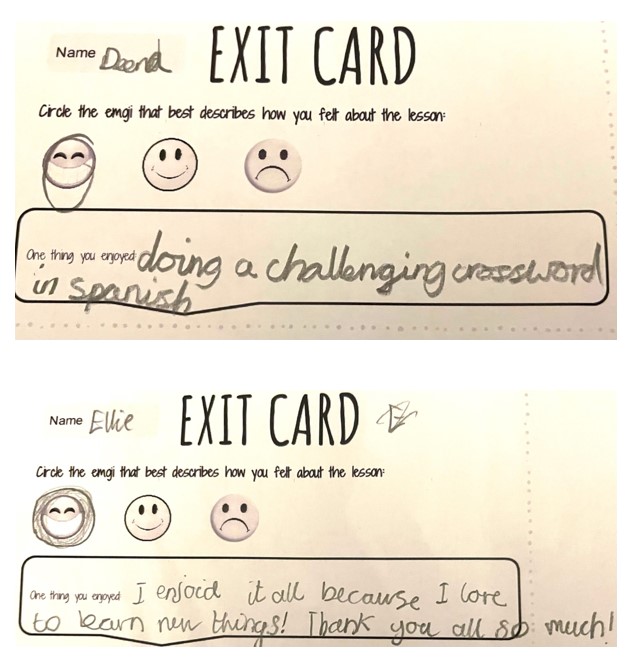 Name Deena
EXIT CARD
Circle the emgji that best describes how you felt about the lesson:
One thing you enjoyed: doing a challenging crossword
in spanish
Name Ellie
EXIT CARD
Circle the emgji that best describes how you felt about the lesson:
One thing you enjoyed I enjoid it all because I love
to learn new things! Thank you all so much!